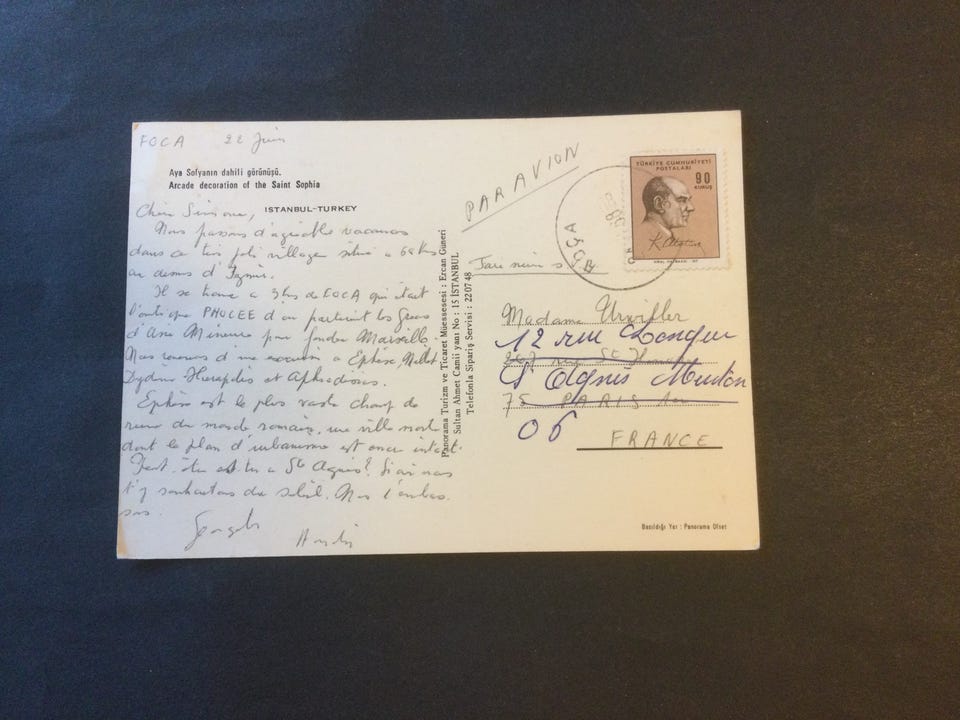 FOCA 22 Juin
Aya Sofyanın dahili görünüşü.
Arcade decoration of the Saint Sophia
ISTANBUL-TURKEY
Chère Simone,
Nous passons d'agréable vacances
dans ce très joli village situé à 68 km
au dessus d'Izmir.
Il se trouve à 3 km de FOCA qui était
l'antique PHOCEE d'ou partirent les Grecs
d'Asie Mineure pour fonder Marseille.
Nous à Ephèse, Milet
Hierapolis et Aphrodisias.
Ephèse est le plus vaste champ de
ruine du monde romain, une ville morte
dont le plan d'urbanisme est encore intact.
Peut-être es-tu à Ste Agnès? Si oui nous
t'y souhaitons du soleil. Nous t'embras
sons.
Panorama Turizm ve Ticaret Müessesesi : Ercan Güneri
Sultan Ahmet Camii yanı No : 15 İSTANBUL
Telefonla Sipariş Servisi : 22 07 48
PAR AVION
TÜRKİYE CUMHURİYETİ
POSTALARI
90
KURUŞ
K. Atatürk
Madame Urwiller
12 rue Longue
267 rue St Honoré
St Agnès Menton
75 PARIS 1er
06
FRANCE
Basıldığı Yer : Panorama Ofset